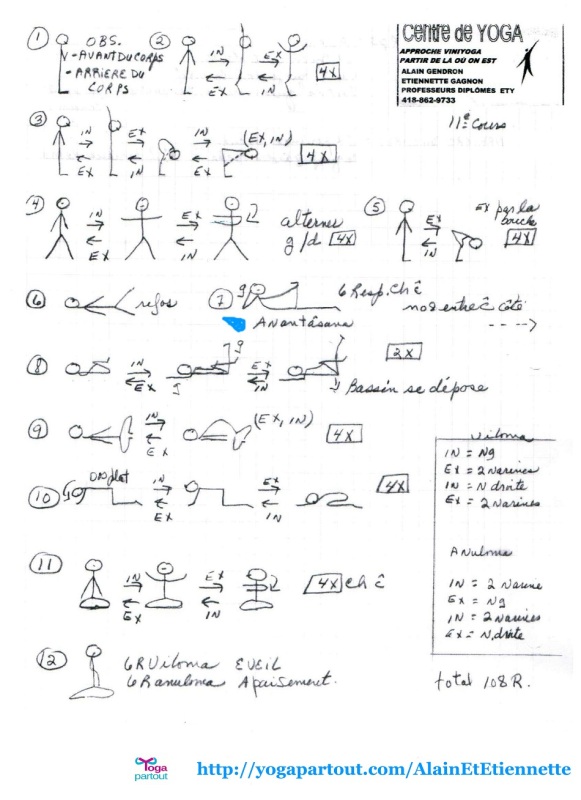 ① OBS.
- AVANT DU CORPS
- ARRIERE DU CORPS
② IN EX
EX IN 4X
Centre de YOGA
APPROCHE VINIYOGA
PARTIR DE LA OÙ ON EST
ALAIN GENDRON
ETIENNETTE GAGNON
PROFESSEURS DIPLÔMES ETY
418-862-9733
11e Cours
③ IN EX IN (EX, IN)
EX IN EX 4X
④ IN EX alternes
EX IN g/d 4X
⑤ EX EX par la bouche
IN 4X
⑥ repos
⑦ g 6 Resp. ch c
Anantâsana
nos entre c côté
⑧ IN g EX 2X
EX g IN
Bassin se dépose
⑨ IN (EX, IN)
EX 4X
⑩ Dos plat IN EX 4X
EX IN
Viloma
IN = Ng
EX = 2 Narines
IN = N droite
EX = 2 Narines
Anuloma
IN = 2 Narine
EX = Ng
IN = 2 Narines
EX = N, droite
⑪ IN EX 4X ch c
EX IN
⑫ 6R Viloma EVEIL
6R anuloma Apaisement.
total 108 R.
Yoga
partout
http://yogapartout.com/AlainEtEtiennette